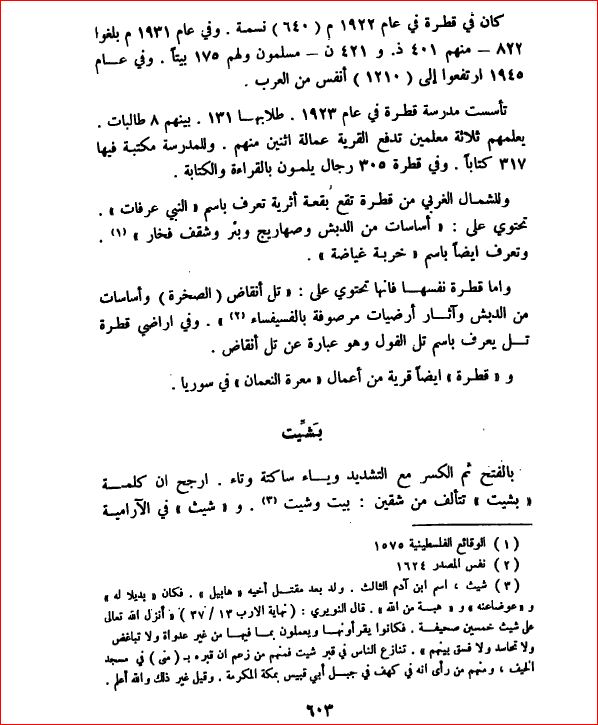 كان في قطرة في عام ١٩٢٢ م ( ٦٤٠ ) نسمة . وفي عام ١٩٣١ م بلغوا
٨٢٢ – منهم ٤٠١ ذ. و ٤٢١ ن – مسلمون ولهم ١٧٥ بيتاً . وفي عــام
١٩٤٥ ارتفعوا إلى ( ١٢١٠ ) أنفس من العرب .
تأسست مدرسة قطرة في عام ١٩٢٣ . طلابهـا ١٣١ . بينهم ٨ طالبات .
يعلمهم ثلاثة معلمين تدفع القرية عمالة اثنين منهم . وللمدرسة مكتبة فيها
٣١٧ كتاباً . وفي قطرة ٣٠٥ رجال يلمون بالقراءة والكتابة .
وللشمال الغربي من قطرة تقع بقعة أثرية تعرف باسم « النبي عرفات » .
تحتوي على : « أساسات من الدبش وصهاريج وبئر وشقف فخار » (١) .
وتعرف ايضاً باسم « خربة غياضة » .
واما قطرة نفسهـا فانها تحتوي على : « تل أنقاض ( الصخرة ) وأساسات
من الدبش وآثـار أرضيات مرصوفة بالفسيفساء (٢) » . وفي اراضي قطرة
تــل يعرف باسم تل الفول وهو عبارة عن تل أنقاض .
و « قطرة » ايضاً قرية من أعمال « معرة النعمان » في سوريا .
بَشِّيت
بالفتح ثم الكسر مع التشديد ويـاء ساكنة وتاء . ارجح ان كلمــة
« بشيت » تتألف من شقين : بيت وشيت (٣) . و « شيث » في الآرامية
( ١ ) الوقائع الفلسطينية ١٥٧٥
( ٢ ) نفس المصدر ١٦٢٤
( ٣ ) شيث ، اسم ابن آدم الثالث . ولد بعد مقتـل أخيه « هابيل » . فكان « بديلا له »
و « عوضاعنه » و « هبـة من الله » . قال النويري : ( نهاية الارب ١٣ / ٣٧ ) « أنزل الله تعالى
على شيث خمسين صحيفـة . فكانوا يقرأونهـا ويعملون بمـا فيهـا من غير عدواة ولا تباغض
ولا تحاسد ولا فسق بينهم » . تنازع الناس في قبر شيث فمنهم من زعم ان قبره بـ ( منى ) في مسجد
الخيف ، ومنهم من رأى انه في كهف في جبـل أبي قبيس بمكة المكرمة . وقيل غير ذلك والله أعلم .
٦٠٣